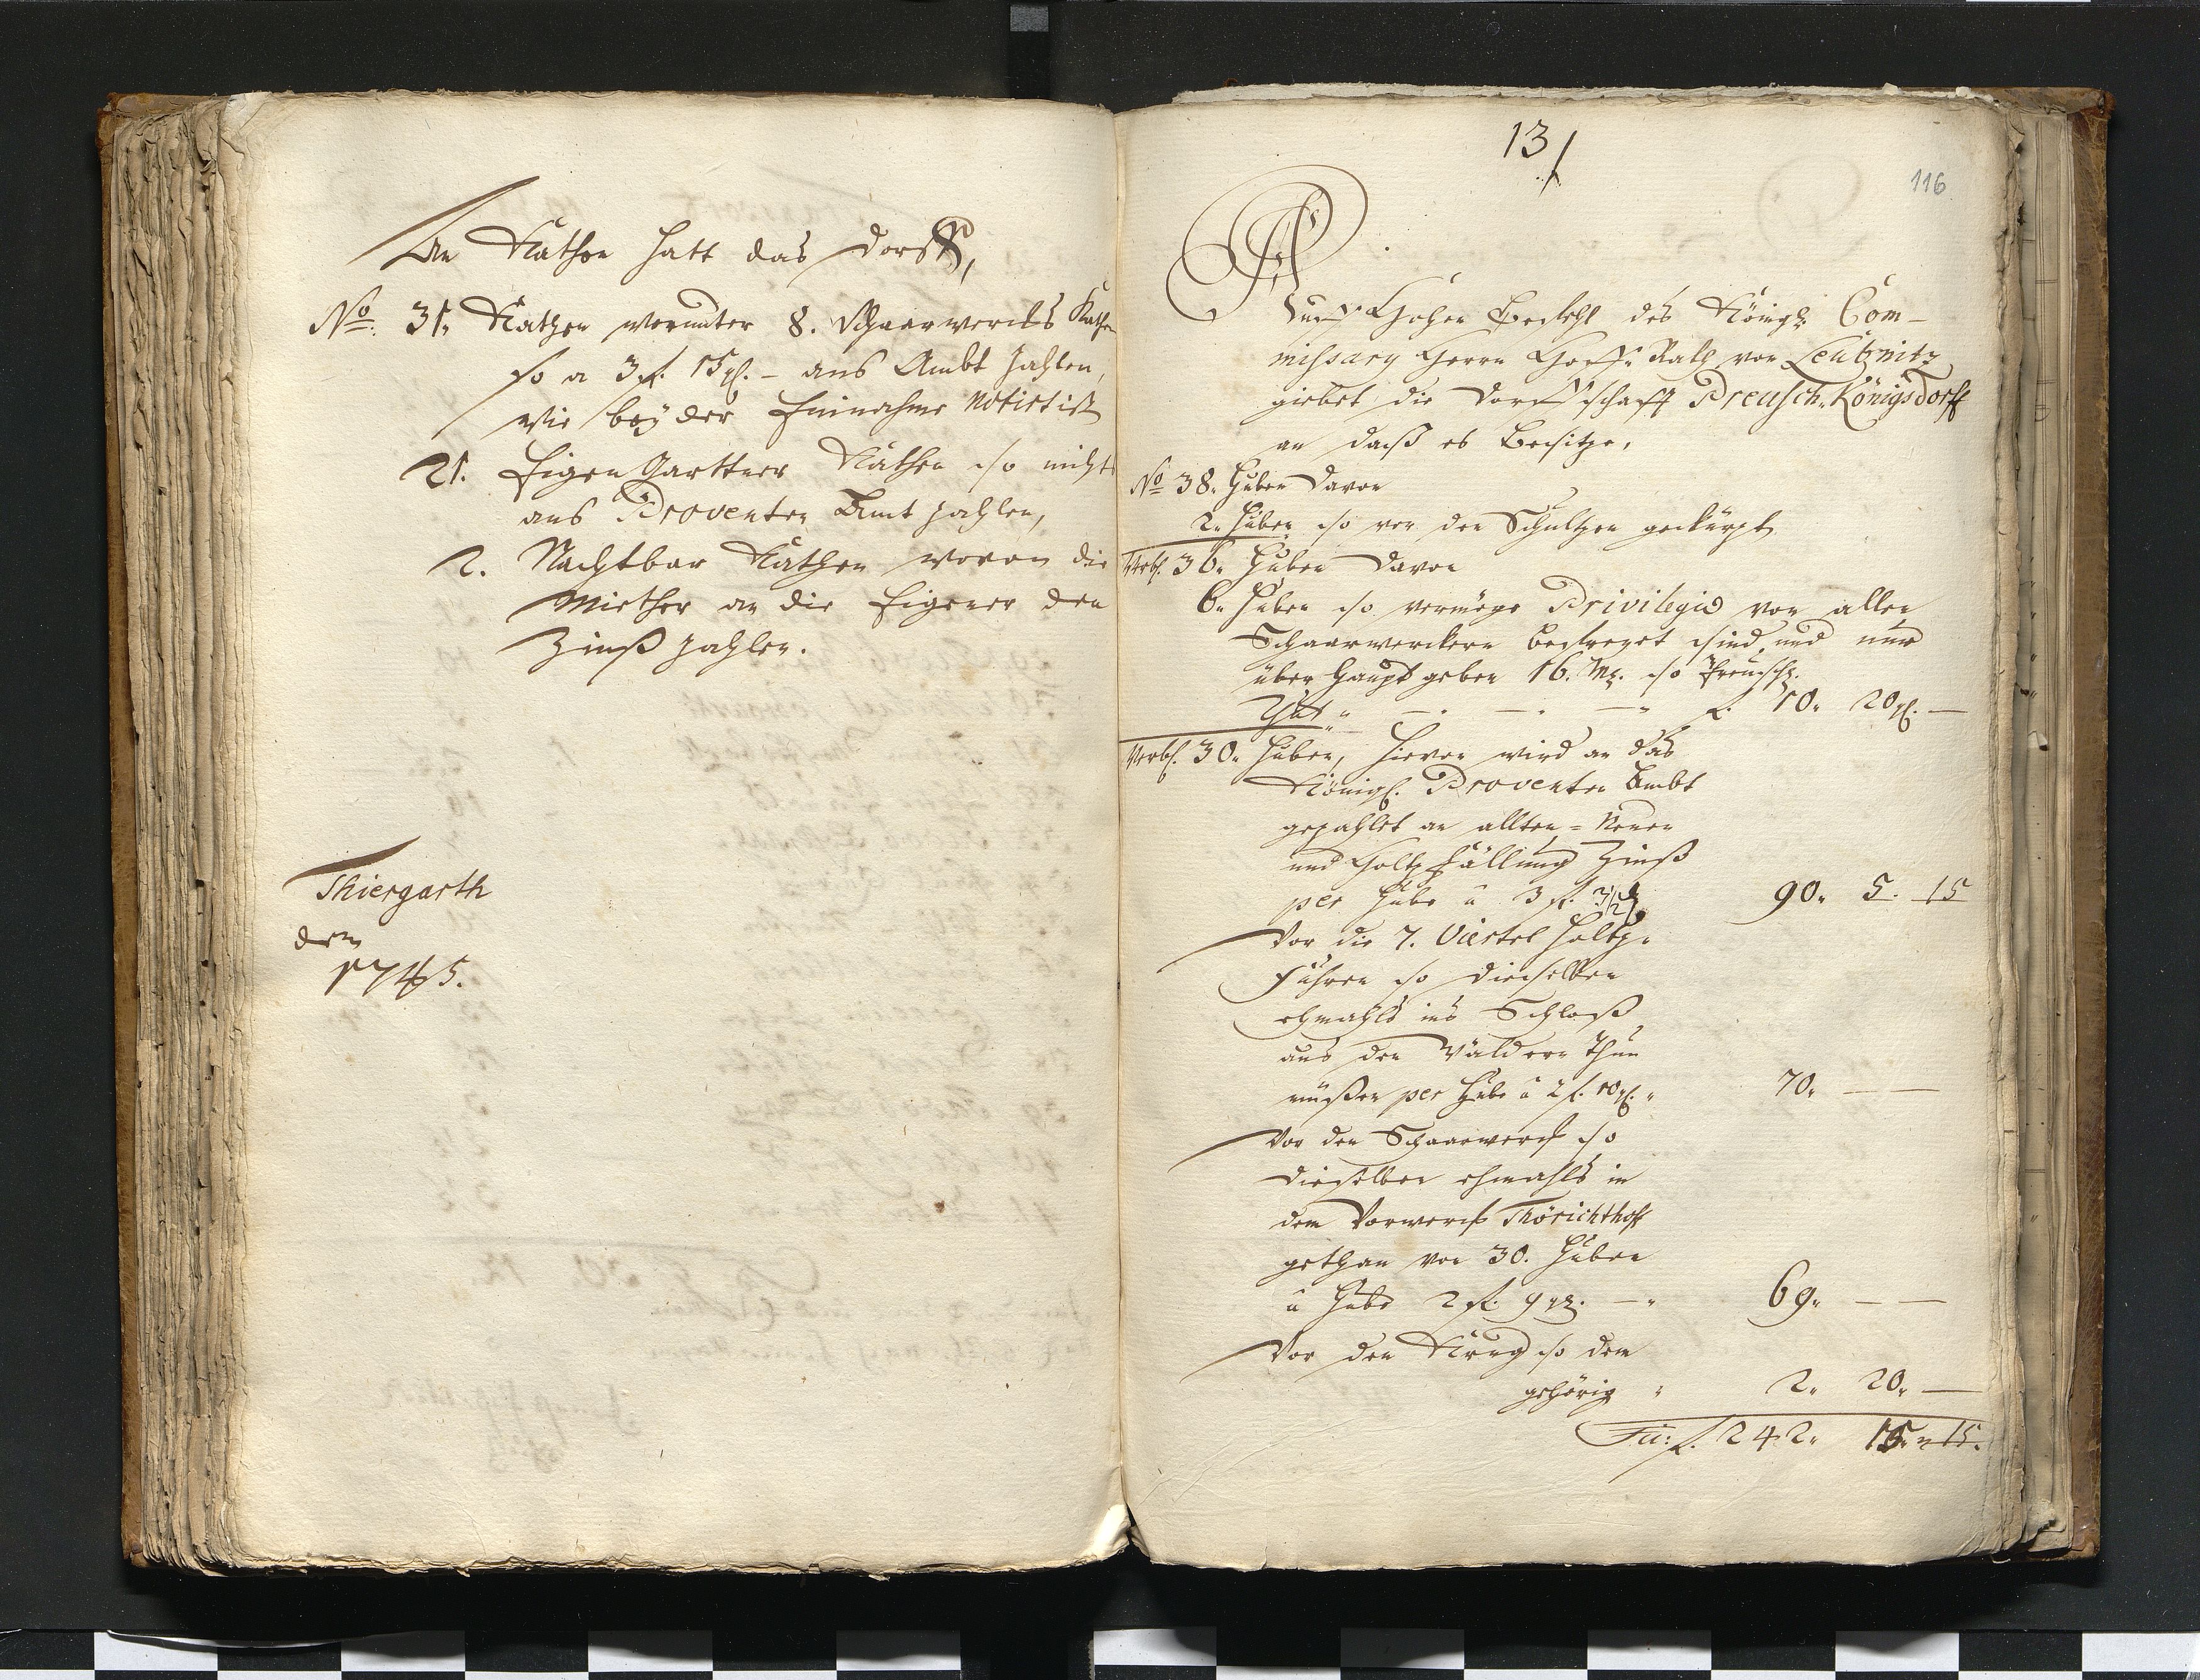 An Kathen hatt das Dorff,
No: 31. Kathen worunter 8. Schaarwercks Kathen
so a 3 f. 15 gl. – ans Ambt zahlen,
wie bey der Einnahme Notirt ist
21. Eigen Garttner Kathen so nicht
ans Proventen Amt zahlen,
2. Nachtbar Kathen wovon die
Miether an die Eigener den
Zinß zahlen.
Thiergarth
den
1745.
13
116
Auff Hohen Befehl des Königl. Com-
missary Herrn Hoff Rath von Leubnitz
giebet die Dorffschafft Preusch. Königsdorff
an daß es Besitze,
No 38. Huben davon
2. Huben so von den Schultzen gekürtzt
Verbl. 36. Huben davon
6. Huben so vermöge Privilegio von allen
Schaarwercken befreyet sind, und nur
über haupt geben 16. Mr. so Preusch.
thut " — — — f. 10. 20 gl. —
Verbl. 30. Huben, hievon wird an das
Königl. Proventen Ambt
gezahlet an allten = Neuen
und Holtz fällung Zinß
per Hube a 3 f. 3½ 90. 5. 15
Vor die 7. Viertel Holtz
Fuhren so dieselben
ehmahls ins Schloß
aus den Wäldern thun
müßen per Hube a 2 f. 10 gl. " 70. — —
Vor den Schaarwerck so
dieselben ehmahls in
dem Vorwerck Thörichthoff
gethan von 30. Huben
a Hube 2 f. 9 gr. — " 69. — —
Vor den Krug so dem
gehörig " 2. 20. —
f. 242. 15. 15.